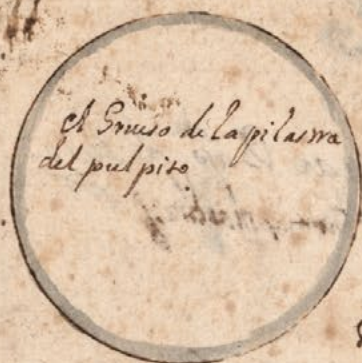 el Grueso de la pilastra
del pulpito